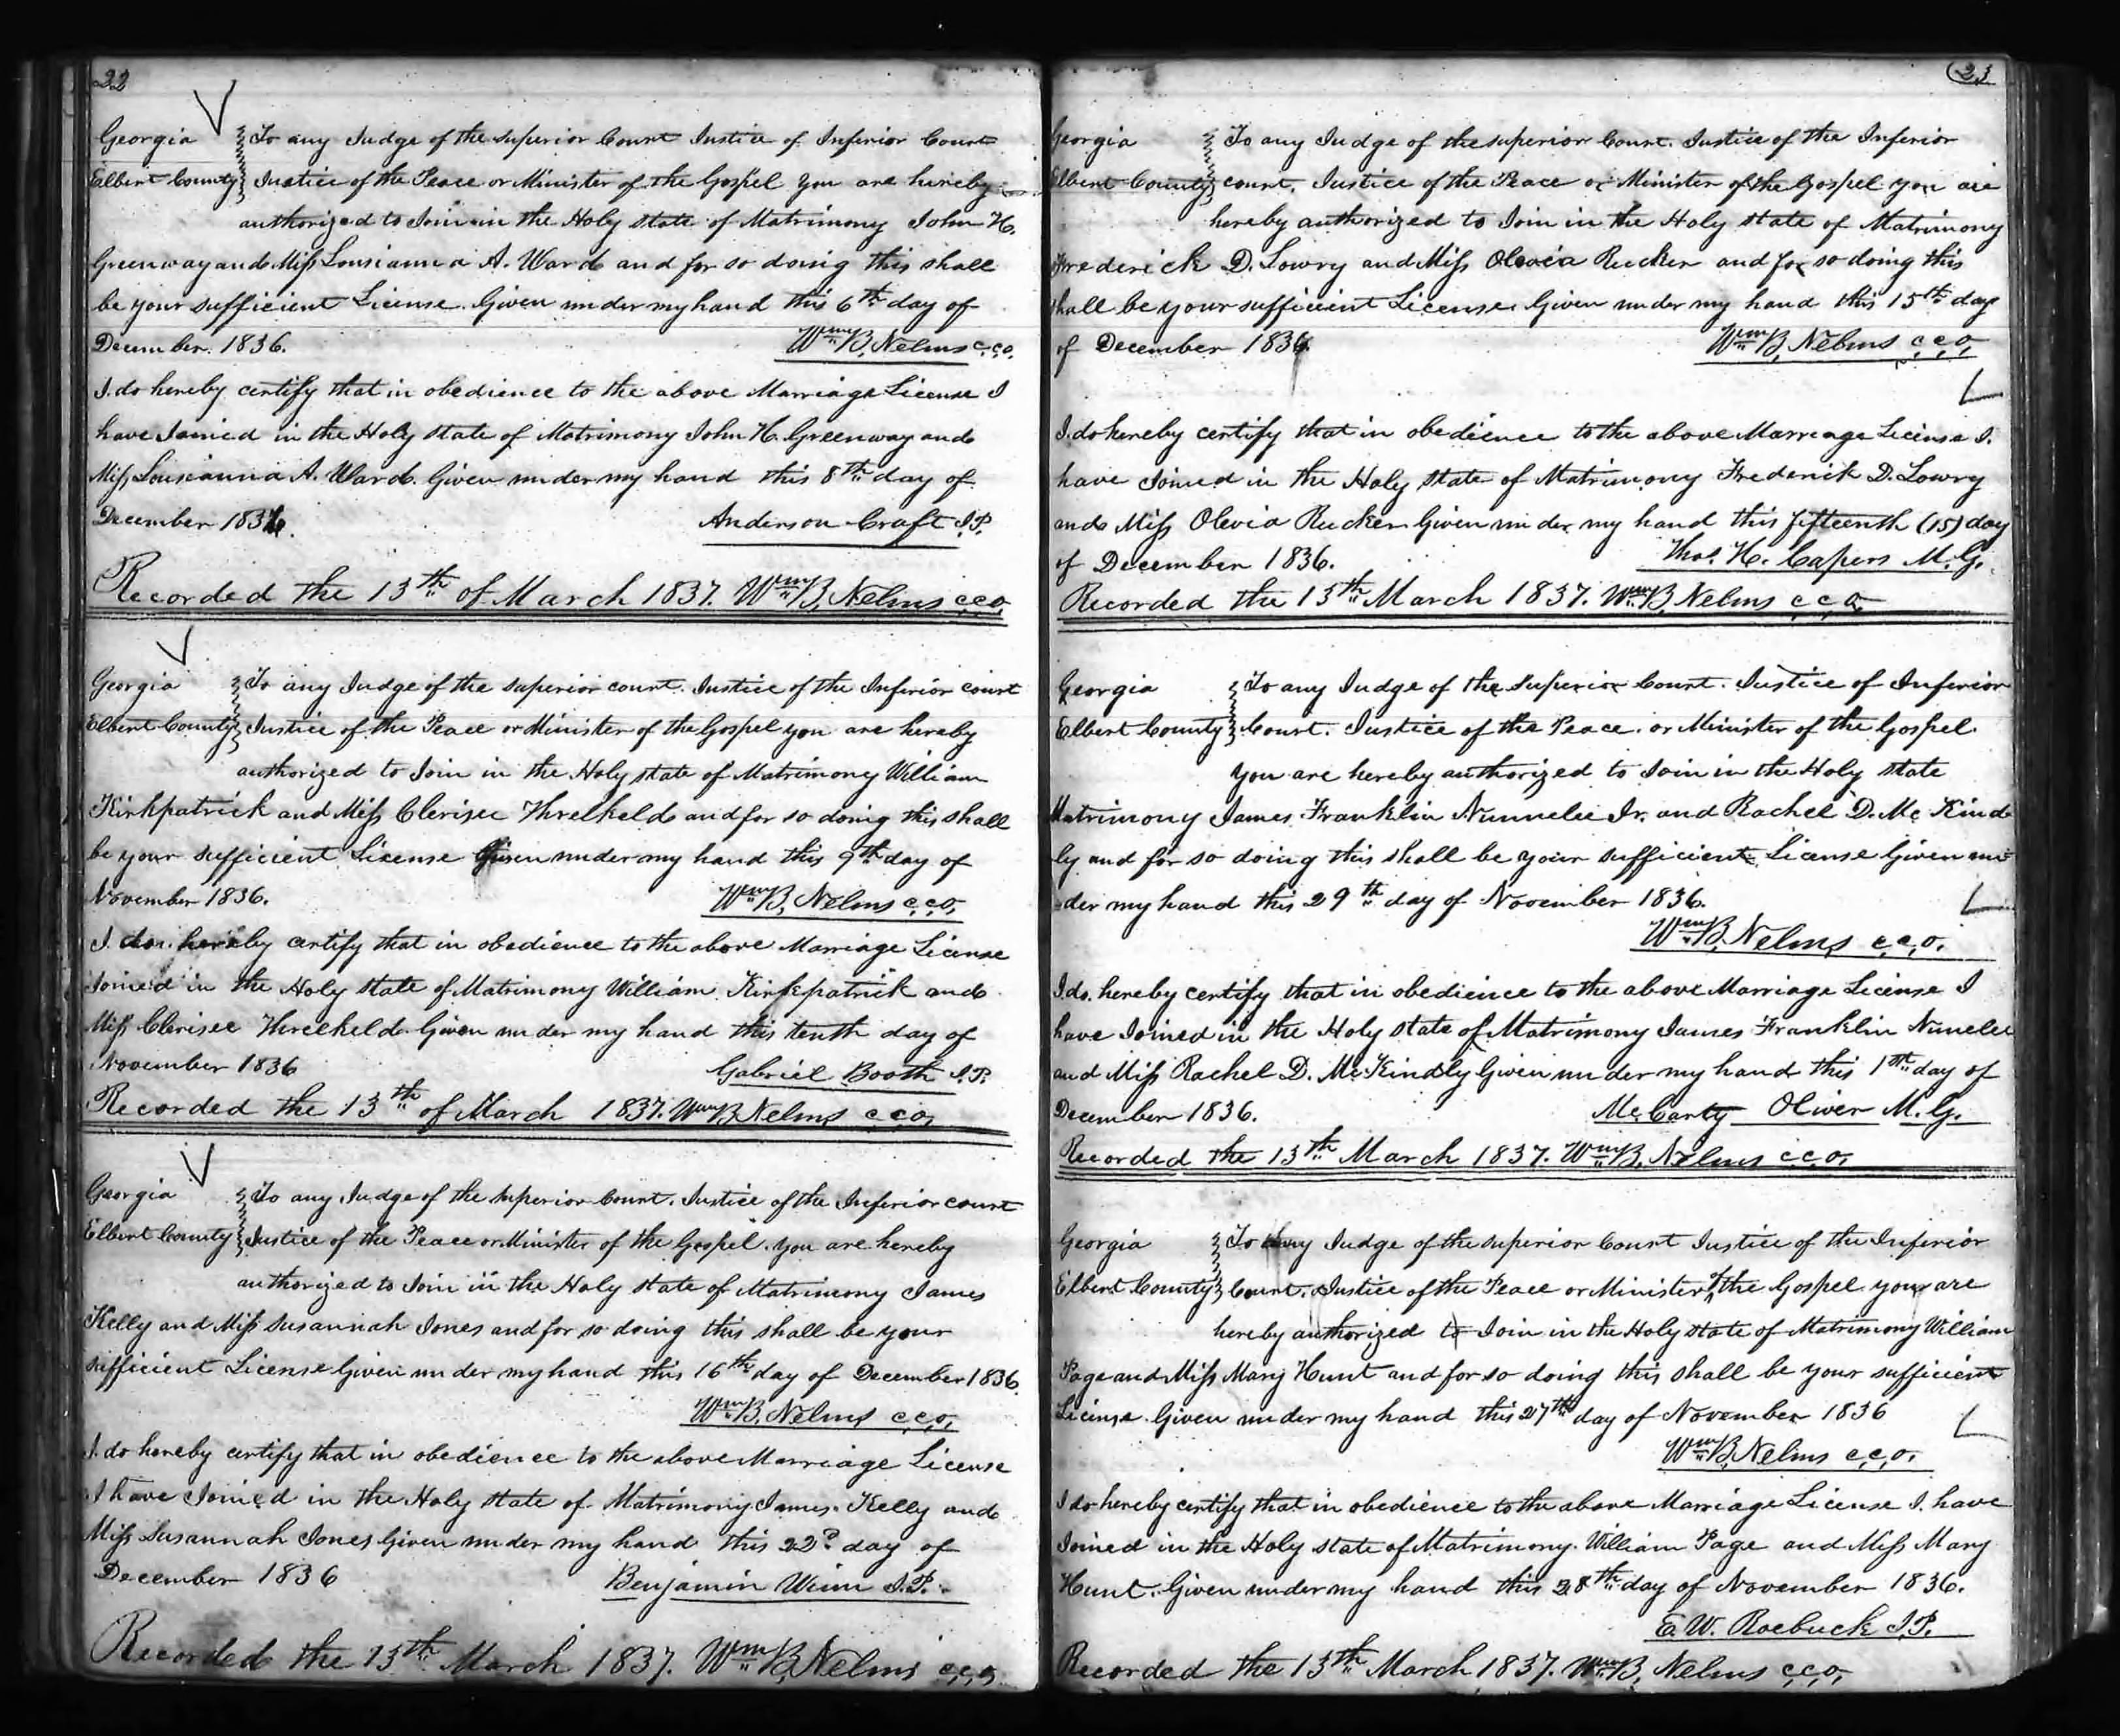 22
Georgia To any Judge of the superior Court Justice of Inferior Court
Elbert County Justice of the Peace or Minister of the Gospel you are hereby
authorized to Join in the Holy state of Matrimony John H.
Greenway and Miss Lousianna A. Ward and for so doing this shall
be your sufficient License. Given under my hand this 6th day of
December. 1836. Wm B. Nelms c.c.o.
I do hereby certify that in obedience to the above Marriage License I
have Joined in the Holy state of Matrimony John H. Greenway and
Miss Lousianna A. Ward. Given under my hand this 8th day of
December 1836. Anderson Craft J.P.
Recorded the 13th of March 1837. Wm B. Nelms c.c.o.
Georgia To any Judge of the superior court. Justice of the Inferior court
Elbert County Justice of the Peace or Minister of the Gospel you are hereby
authorized to Join in the Holy state of Matrimony William
Kirkpatrick and Miss Clerisee Threlkeld and for so doing this shall
be your sufficient License Given under my hand this 9th day of
November 1836. Wm B. Nelms c.c.o.
I do hereby certify that in obedience to the above Marriage License
Joined in the Holy state of Matrimony William Kirkpatrick and
Miss Clerisee Threlkeld. Given under my hand this tenth day of
November 1836 Gabriel Booth J.P.
Recorded the 13th of March 1837. Wm B Nelms c c o,
Georgia To any Judge of the superior Court. Justice of the Inferior court
Elbert County Justice of the Peace or Minister of the Gospel. you are hereby
authorized to Join in the Holy state of Matrimony James
Kelly and Miss Susannah Jones and for so doing this shall be your
sufficient License Given under my hand this 16th day of December 1836.
Wm B. Nelms c.c.o.
I do hereby certify that in obedience to the above Marriage License
I have Joined in the Holy state of Matrimony James Kelly and
Miss Susannah Jones Given under my hand this 22d day of
December 1836 Benjamin Winn J.P.
Recorded the 13th March 1837. Wm B, Nelms c.c.o.
23
Georgia To any Judge of the superior Court. Justice of the Inferior
Elbert County court. Justice of the Peace or Minister of the Gospel you are
hereby authorized to Join in the Holy state of Matrimony
Frederick D. Lowry and Miss Olevia Rucker and for so doing this
shall be your sufficient License. Given under my hand this 15th day
of December 1836. Wm B, Nelms c.c.o,
I do hereby certify that in obedience to the above Marriage License I.
have Joined in the Holy state of Matrimony Frederick D. Lowry
and Miss Olevia Rucker Given under my hand this fifteenth (15) day
of December 1836. Thos. H. Capers M.G.
Recorded the 13th March 1837. Wm B, Nelms c c o.
Georgia To any Judge of the superior Court. Justice of Inferior
Elbert County Court. Justice of the Peace. or Minister of the Gospel.
you are hereby authorized to Join in the Holy state
Matrimony James Franklin Nunnelee Jr. and Rachel D. Mc Kind
ly and for so doing this shall be your sufficient License Given un
der my hand this 29th day of November 1836.
Wm B, Nelms c.c.o.
I do. hereby certify that in obedience to the above Marriage License I
have Joined in the Holy state of Matrimony James Franklin Nunelee
and Miss Rachel D. McKindly Given under my hand this 1st day of
December 1836. McCarty Oliver M.G.
Recorded the 13th March 1837. Wm B, Nelms c.c.o.
Georgia To any Judge of the superior Court Justice of the Inferior
Elbert County Court. Justice of the Peace or Minister of the Gospel you are
hereby authorized to Join in the Holy state of Matrimony William
Page and Miss Mary Hunt and for so doing this shall be your sufficient
License. Given under my hand this 27th day of November 1836
Wm B, Nelms c.c.o.
I do hereby certify that in obedience to the above Marriage License I. have
Joined in the Holy state of Matrimony. William Page and Miss Mary
Hunt. Given under my hand this 28th day of November 1836.
E.W. Roebuck J.P.
Recorded the 13th March 1837. Wm B, Nelms c.c.o,